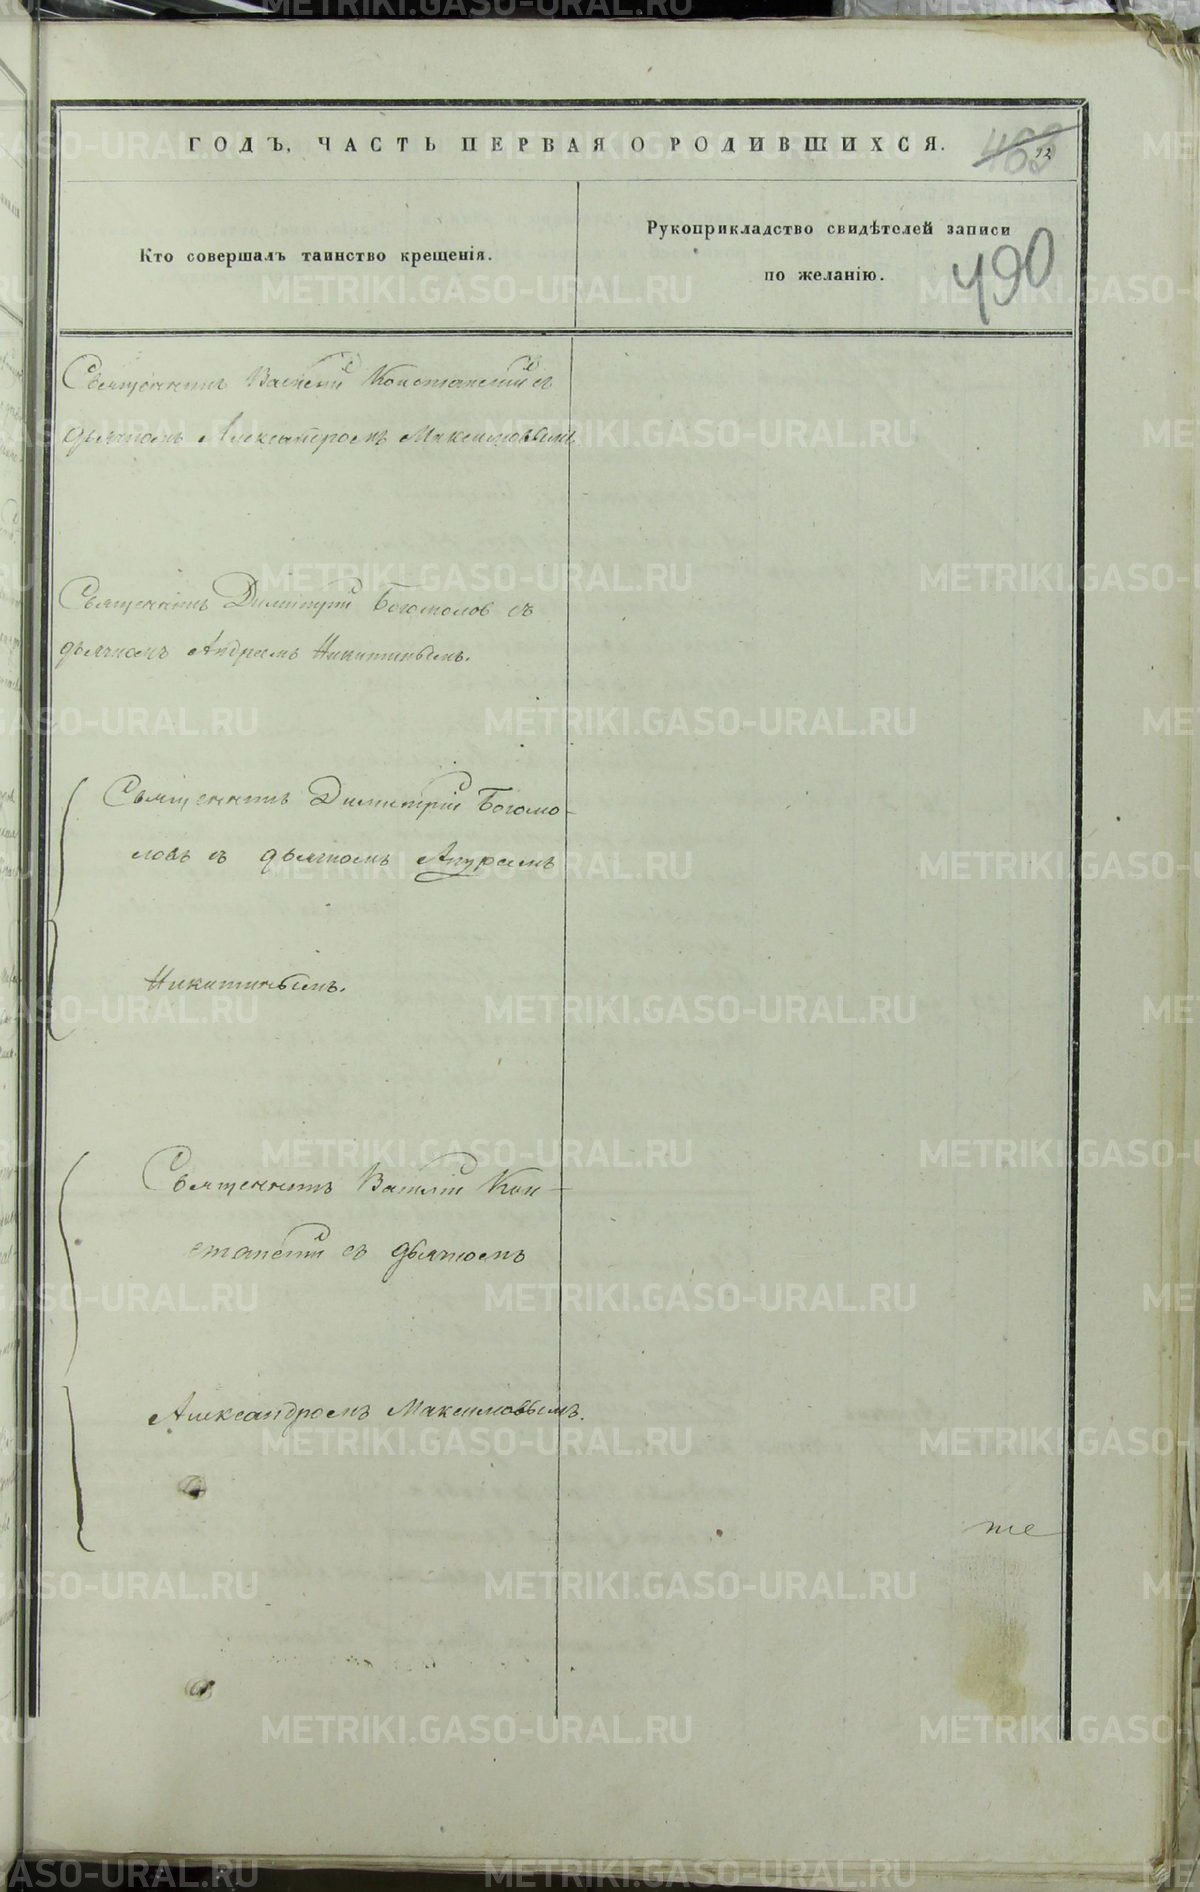 ГОДЪ, ЧАСТЬ ПЕРВАЯ О РОДИВШИХСЯ.
463
72
Кто совершалъ таинство крещенія.
Рукоприкладство свидѣтелей записи
по желанію.
490
Священникъ Василій съ
дьячкомъ Александромъ Максимовымъ
Священникъ Димитрій Богомолов съ
дьячкомъ Андреемъ Никитинымъ.
Священникъ Димитрій Богомо-
ловъ съ дьячкомъ Андреемъ
Никитинымъ.
Священникъ Василій Кон-
съ дьячкомъ
Александромъ Максимовымъ.
METRIKI.GASO-URAL.RU